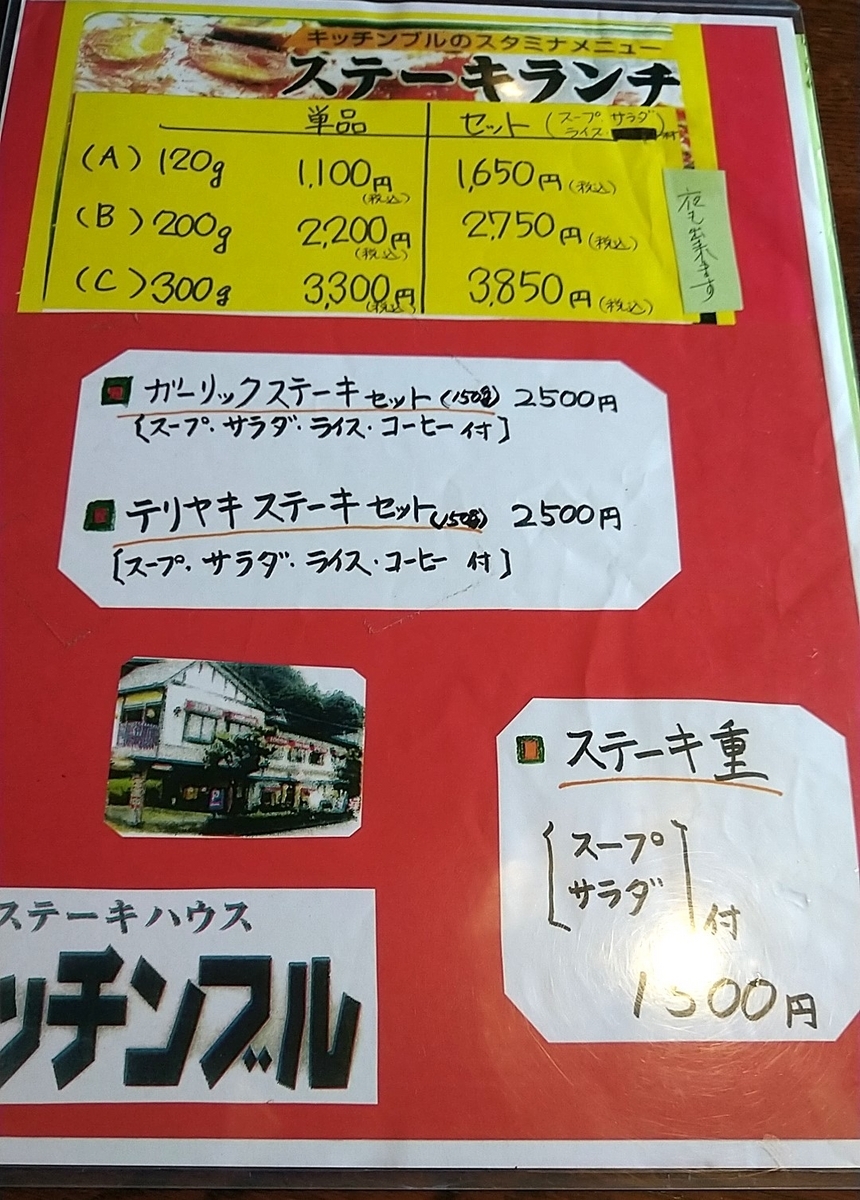 キッチンブルのスタミナメニュー
ステーキランチ
単品 セット (スープ サラダ ライス・ 付)
(A) 120g 1,100円(税込) 1,650円(税込)
(B) 200g 2,200円(税込) 2,750円(税込)
(C) 300g 3,300円(税込) 3,850円(税込)
夜も出来ます
ガーリックステーキセット(150g) 2500円
[スープ・サラダ・ライス・コーヒー付]
テリヤキステーキセット(150g) 2500円
[スープ・サラダ・ライス・コーヒー付]
ステーキ重
スープ
サラダ
付
1500円
ステーキハウス
ッチンブル